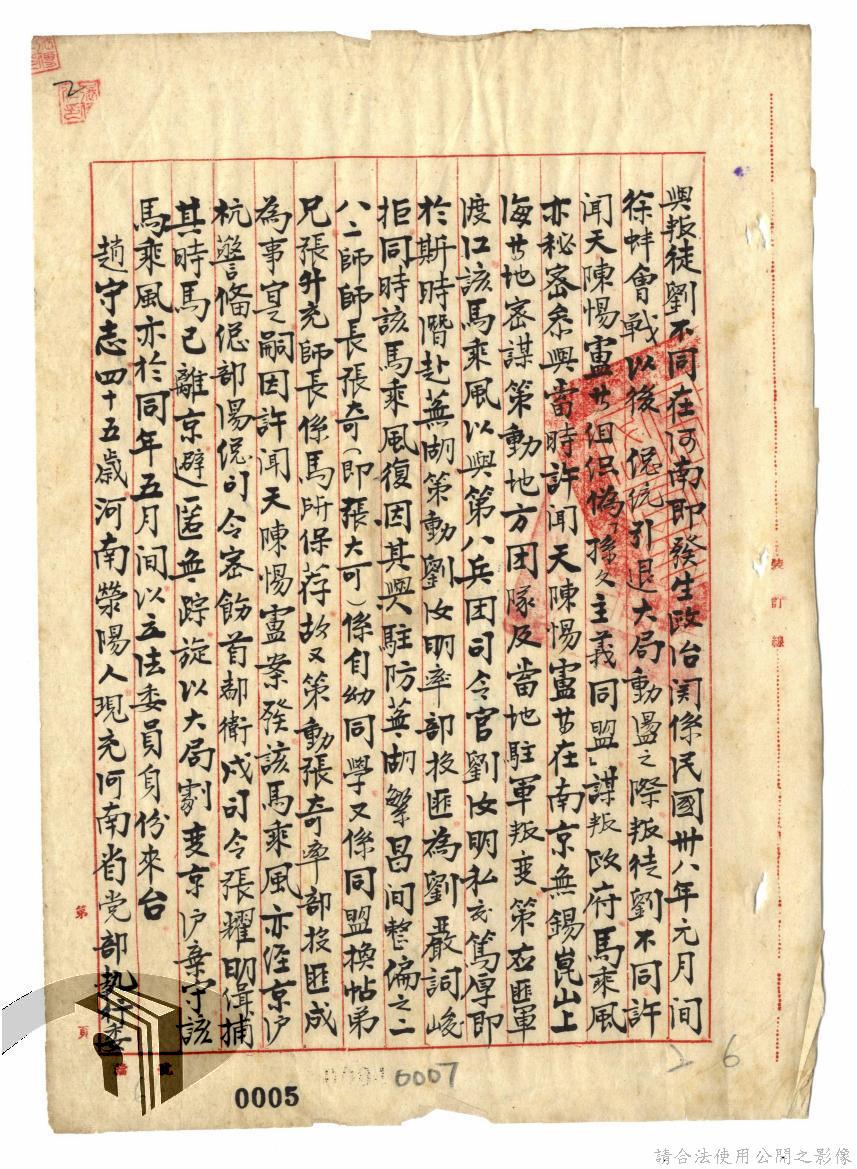 與叛徒劉不同在河南即發生政治関係民國卅八年元月間
徐蚌會戰以後總統引退大局動盪之際叛徒劉不同許
聞天陳惕廬廿組織偽「孫文主義同盟」謀叛政府馬乘風
亦秘密參與當時許聞天陳惕廬廿在南京無錫崑山上
海廿地密謀策動地方団隊及當地駐軍叛变策应匪軍
渡口該馬乘風以與第八兵団司令官劉汝明私交篤厚即
於斯時潛赴蕪湖策動劉汝明率部投匪為劉嚴詞峻
拒同時該馬乘風復因其與駐防蕪湖繁昌间整编之二
八二師師長張奇(即張大可)係自幼同學又係同盟換帖弟
兄張升充師長係馬所保荐故又策動張奇率部投匪成
為事实嗣因許聞天陳惕廬案發該馬乘風亦經京沪
杭警備總部湯總司令密飭首都衛戍司令張耀明缉捕
其時馬已離京避匿無踪旋以大局劇变京沪棄守該
馬乘風亦於同年五月间以立法委員自份來台
趙守志四十五歲河南滎陽人現充河南省党部执行委
裝訂線
第
頁
檔
號
2
0007
26
0005
請合法使用公開之影像